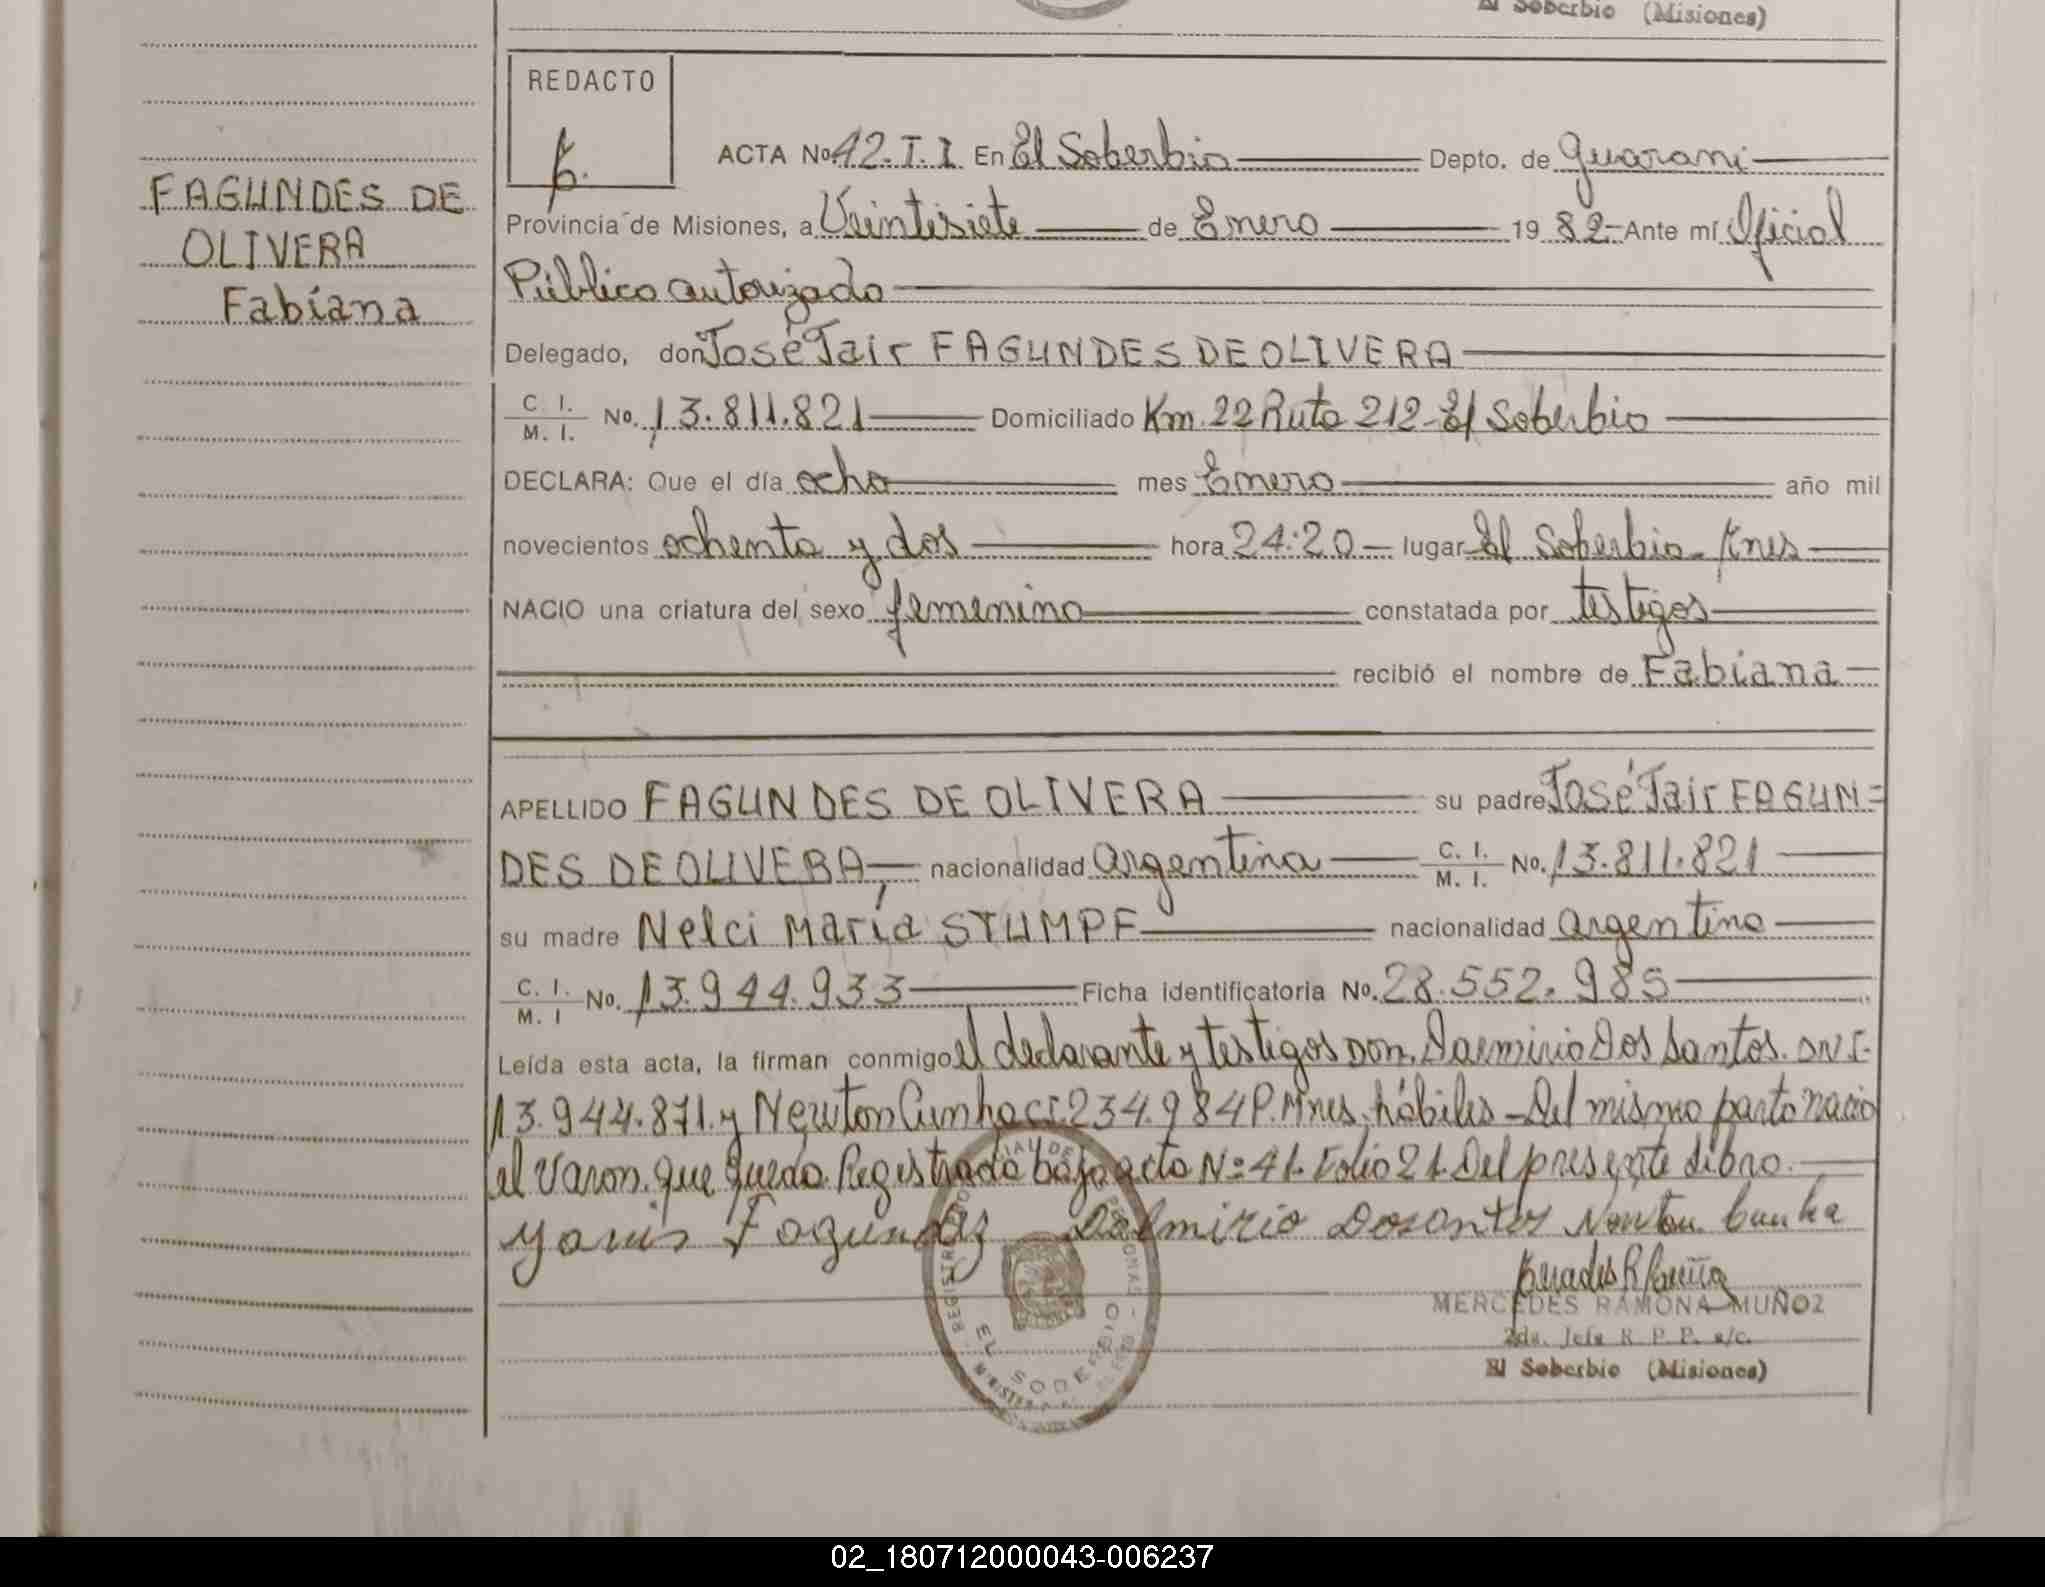 El Soberbio (Misiones)
REDACTO
ACTA No. 42. T. I En El Soberbio Depto. de Guarani
FAGUNDES DE
OLIVERA
Fabiana
Provincia de Misiones, a Veintisiete de Enero 19 82.- Ante mí Oficial
Público autorizado
Delegado, don José Jair FAGUNDES DE OLIVERA
C. I.
M. I. No. 13.811.821 Domiciliado Km. 22 Ruta 212-El Soberbio
DECLARA: Que el día ocho mes Enero año mil
novecientos ochenta y dos hora 24:20 lugar El Soberbio- Mnes
NACIO una criatura del sexo femenino constatada por testigos
recibió el nombre de Fabiana
APELLIDO FAGUNDES DE OLIVERA su padre José Jair FAGUN=
DES DE OLIVERA, nacionalidad Argentina C. I. M. I. No. 13.811.821
su madre Nelci María STUMPF nacionalidad Argentina
C. I.
M. I No. 13.944.933 Ficha identificatoria No. 28.552.985
Leída esta acta, la firman conmigo el declarante y testigos Don. Dalmirio Dos Santos. DNI.
13.944.871. y Newton Cunha C.I. 234.984 P. Mnes. hábiles - Del mismo parto nacio
el Varon. que quedo Registrado bajo acto Nº 41. Folio 21. Del presente libro.
Fagundez Dalmirio Dosantos Newton Cunha
MERCEDES RAMONA MUÑOZ
2da. Jefe R. P. P. a/c.
El Soberbio (Misiones)
EL SOBERBIO
02_180712000043-006237